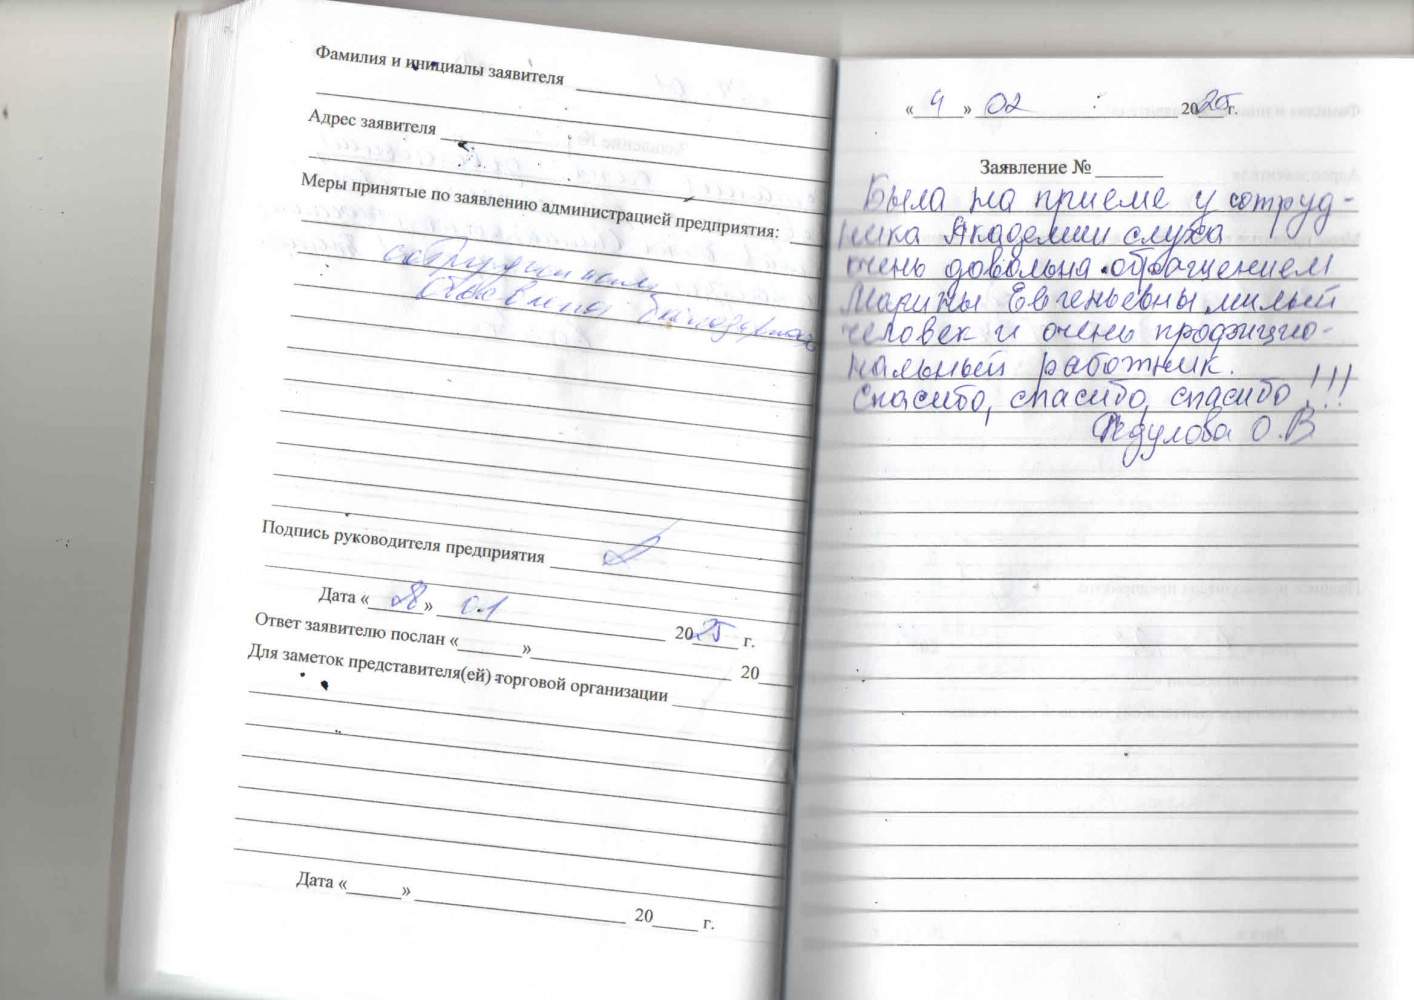 Фамилия и инициалы заявителя
Адрес заявителя
Меры принятые по заявлению администрацией предприятия:
объявлена благодарность
Подпись руководителя предприятия
Дата «28» 01 2025 г.
Ответ заявителю послан «______»____________ 20___
Для заметок представителя(ей) торговой организации
Дата «______»____________ 20____ г.
«4» 02 2025 г.
Заявление № _______
Была на приеме у сотруд-
ника Академии слуха
очень довольна обращением
Марины Евгеньевны, милый
человек и очень профицио-
нальный работник.
Спасибо, спасибо, спасибо!!!
О.В